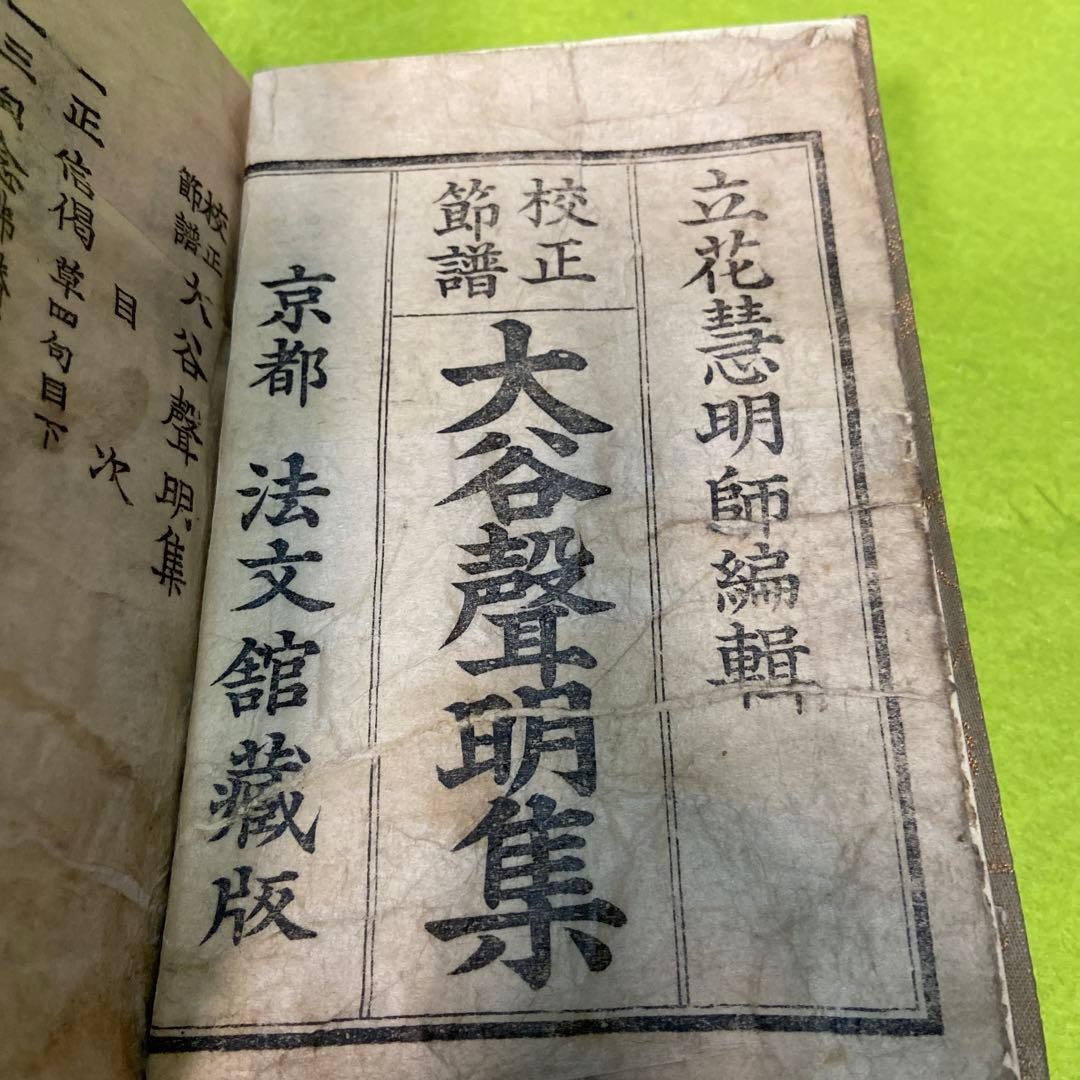 立花慧明師編輯
校正
節譜
大谷聲明集
京都 法文館藏版
校正
節譜
大谷聲明集
目次
一正信偈 草四句目下
一三句念佛